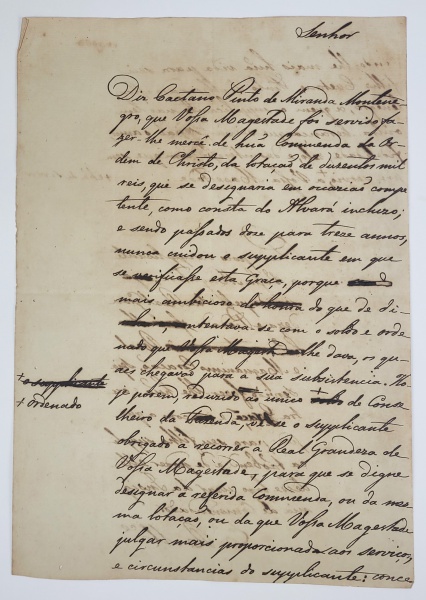 Senhor
Diz Caetano Pinto de Miranda Montene
gro, que Vossa Magestade foi servido fa
zer-lhe mercê de hũa Commenda da Or
dem de Christo, da lotação de duzentos mil
reis, que se designaria em occazião compe
tente, como consta do Alvará incluzo;
e sendo passados doze para treze annos,
nunca cuidou o supplicante em que
se verificasse esta Graça, porque
mais ambicioso de honra do que de di
contentava-se com o soldo e orde
nado que Vossa Magest lhe dava, os qu
aes chegavão para a sua subsistencia. Ho
je porem, reduzido ao unico de Conse
+ o supplicante
+ ordenado
lheiro da Fazenda, vê-se o supplicante
obrigado a recorrer a Real Grandeza de
Vossa Magestade, para que se digne
designar a referida Commenda, ou da mes
ma lotação, ou da que Vossa Magestade
julgar mais proporcionada aos serviços,
e circunstancias do supplicante: conce